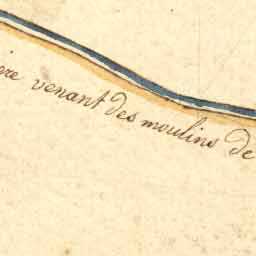 ere venant des moulins de